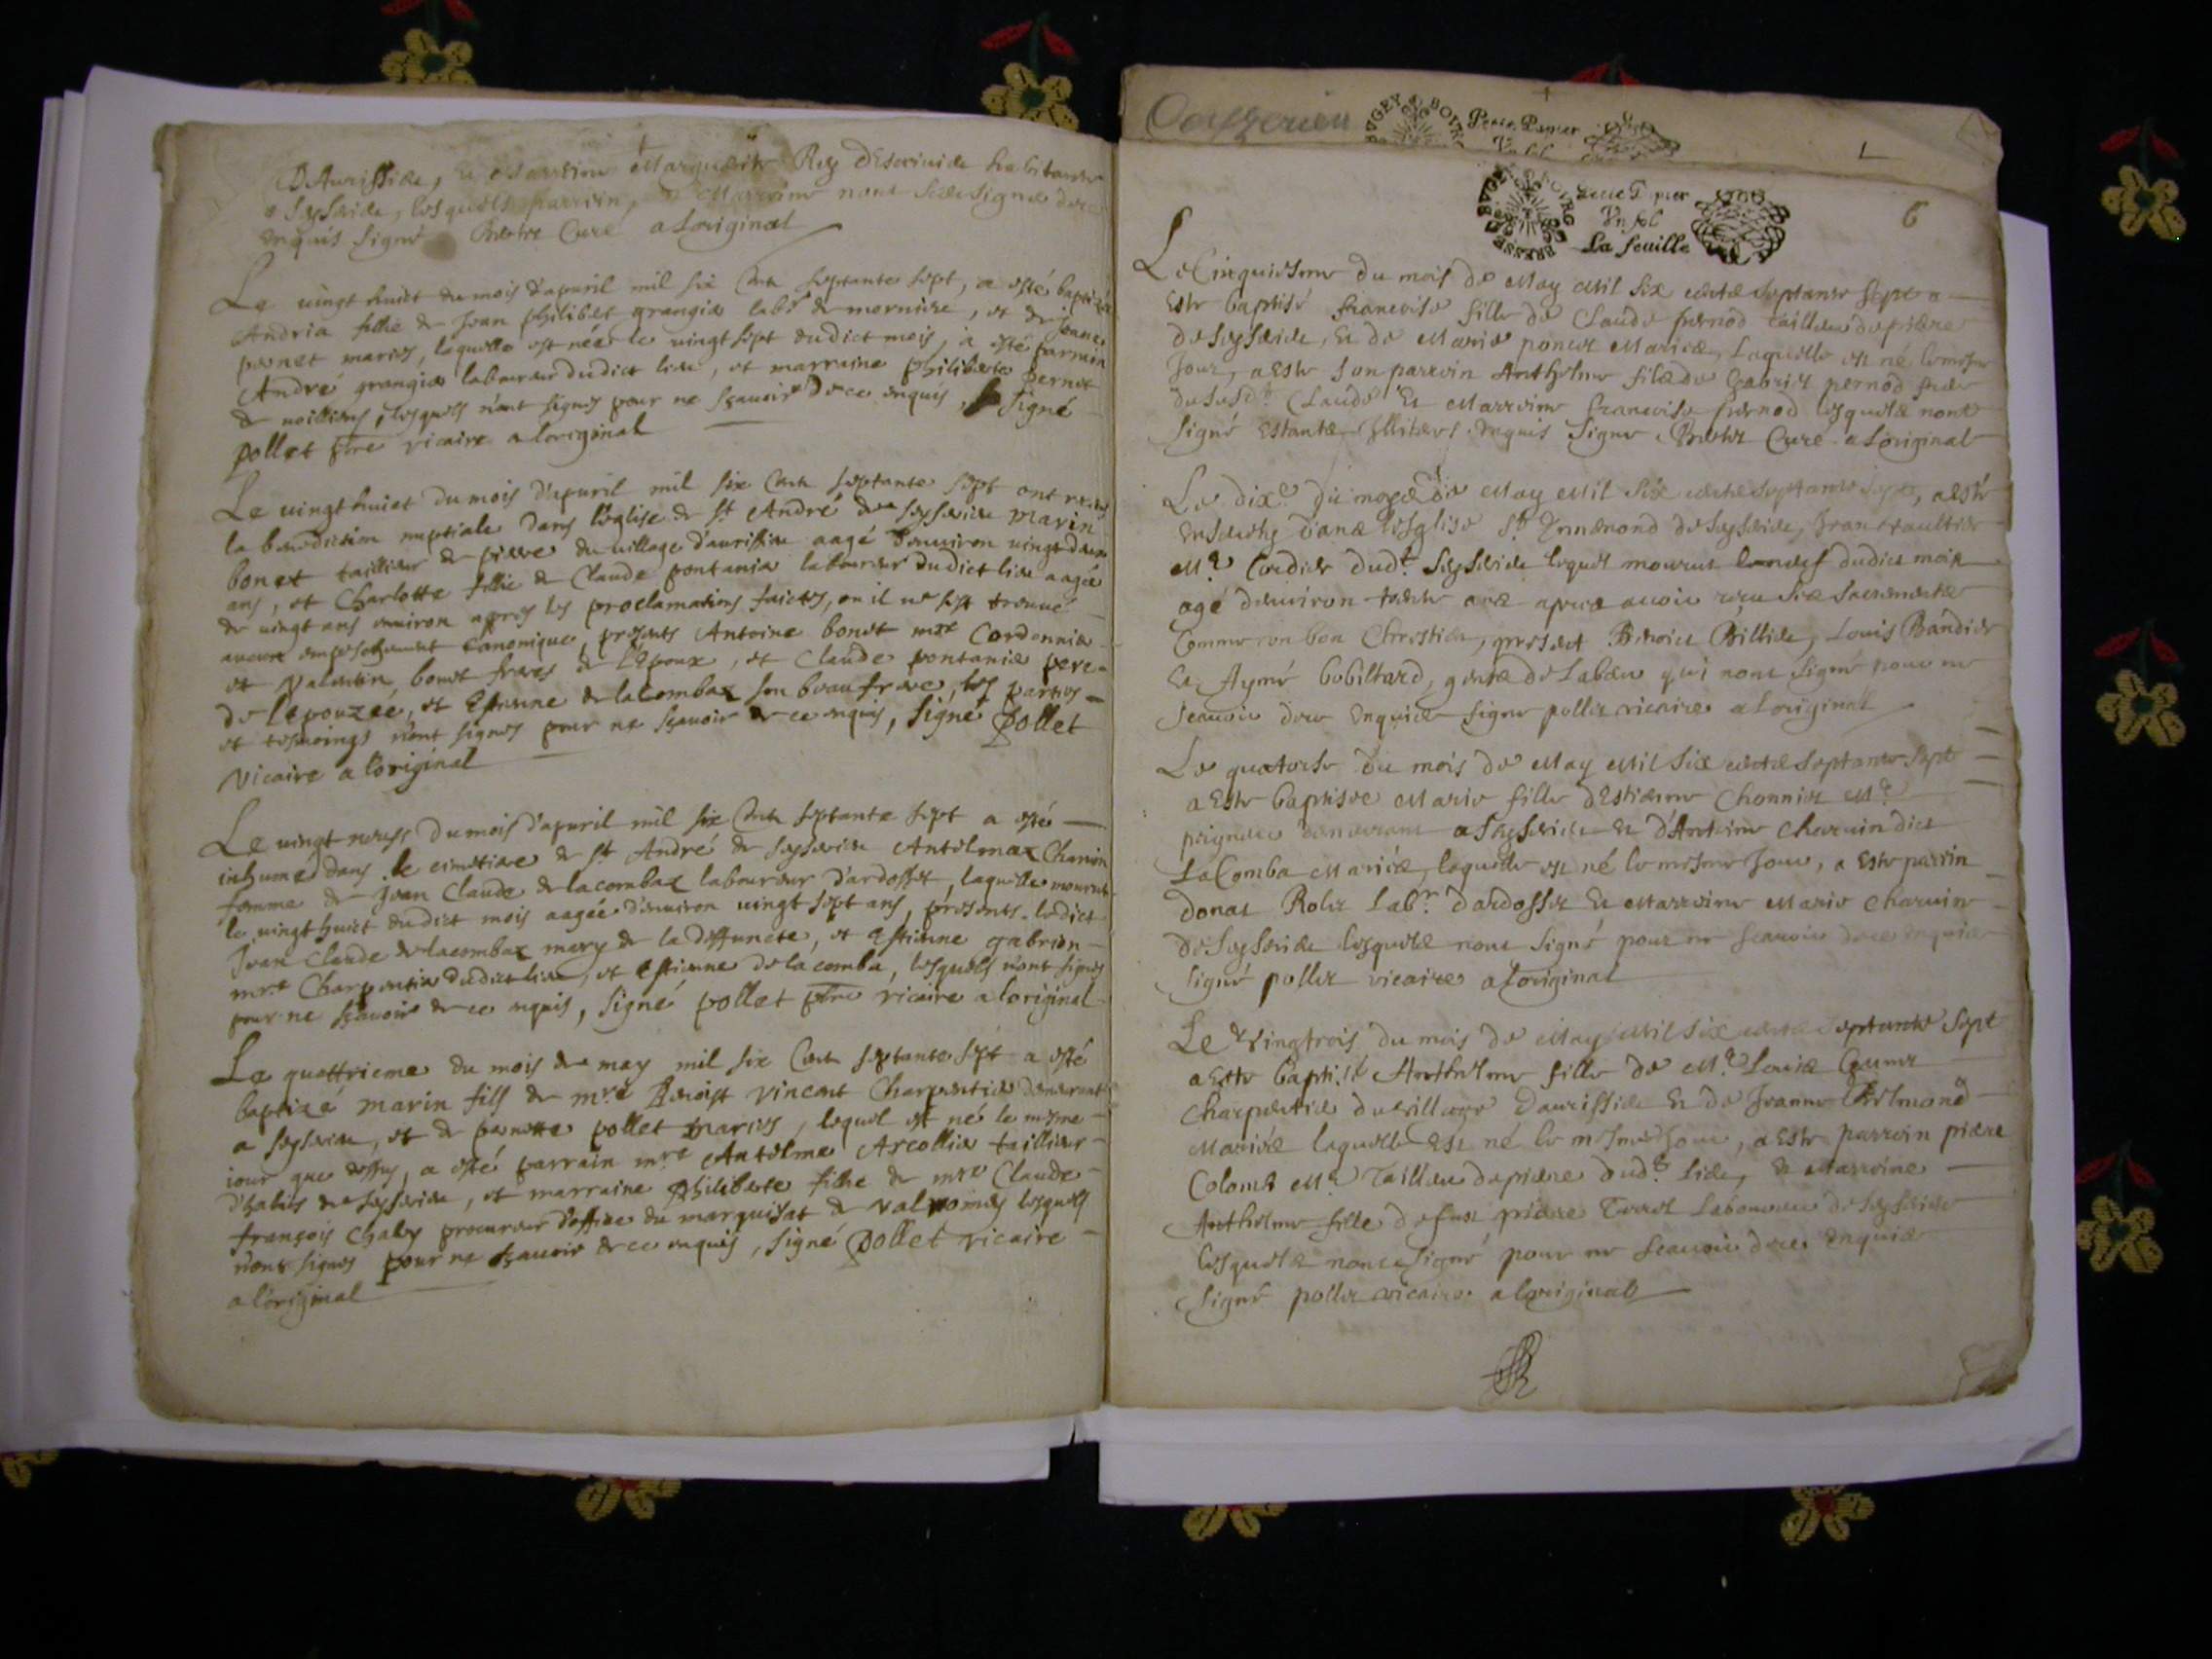 D'Aurissieu, et Marrine Marguerite Rey habitante
a Seyssieu, lesquels parrin, et Marrine nont sceu signer de ce
enquis signé Curé a Loriginal
Le vingt huict du mois d'apuril mil six Cents septante sept, a esté baptizée
Andria fillie de Jean philibet grangier labr de mornieu, et de Jeanne
pernet mariés, laquelle est née le vingt sept dudict mois, a esté parrain
André grangier laboureur dudict lieu, et marraine philiberte pernet
de lesquels n'ont signés pour ne sçauoir de ce enquis, signé
pollet ptre vicaire a loriginal
Le vingt huict du mois d'apuril mil six Cents septante sept ont receu
la benediction nuptiale dans l'eglise de st André de seyssieu marin
bonet taillieur de pierre du village d'aurissieu aagé d'enuiron vingt deux
ans, et Charlotte fillie de Claude pontanier laboureur dudict lieu aagée
de vingt ans enuiron apres les proclamations faictes, ou il ne sest treuué
aucun empeschement canonique, presents Antoine bonet mre Cordonnier
et Valentin bonet freres de l'Epoux, et Claude pontanier pere
de l'epouzée, et Estienne de lacombaz son beaufrere, les parties
et tesmoings n'ont signés pour ne sçauoir de ce enquis, signé pollet
vicaire a l'original
Le vingt neufs du mois d'apuril mil six Cents septante sept a esté
inhumé dans le cimetiere de st André de seyssieu Antelmaz Charuin
femme de Jean Claude de lacombaz laboureur d'ardosset, laquelle mourut
le vingt huict dudict mois aagée d'enuiron vingt sept ans, presents ledict
Jean Claude de lacombaz mary de la deffuncte, et Estienne gabrion
mre Charpentier dudict lieu, et Estienne de la comba, lesquels n'ont signés
pour ne sçauoir de ce enquis, signé pollet ptre vicaire a loriginal
Le quattrieme du mois de may mil six Cents septante sept a esté
baptizé marin fils de mre Benoist vincent Charpentier demeurant
a seyssieu, et de pernette pollet mariés, lequel est né le mesme
iour que dessus, a esté parrain mre Antelme Arcollier taillieur
d'habits de seyssieu, et marraine philiberte fillie de mre Claude
françois Chaley procureur d'office du marquisat de valromey lesquels
n'ont signés pour ne sçauoir de ce enquis, signé pollet vicaire
a l'original
BVGEY BOVRG
Petit Papier
BOVRG BRESSE BVGEY
Petit Papier
Vn sol
La feuille
6
Le Cinquiesme du mois de May Mil Six cents Septante Sept a
Esté baptisé francoise fille de Claude pernod tailleur de pierre
de Seyssieu, Et de Marie poncet Mariés, Laquelle est né le mesme
Jour, a Esté son parrein Anthelme fils de Gabriel pernod frere
du susdt Claude Et Marreine francoise pernod lesquels nont
signé Estants Illiterés Enquis Signé Curé a Loriginal
Le dixe du moys de May Mil Six cents Septante Sept, a Esté
Enseuely dans lesglise St Ennemond de Seyssieu, Jean
Me Cordier dudt Seyssieu lequel mourut dudict mois
agé denuiron trente ans apres auoir receu ses sacrements
Comme un bon Chrestien, present Benoict Billiet, Louis Bandier
Et Aymé bobillard, gents de Labeur qui nont signé pour ne
scauoir de ce Enquis signé pollet vicaire a Loriginal
Le quatorse du mois de May Mil Six cents Septante Sept
a Esté baptisée Marie fille d'Estienne Chonnier Me
peigneur demeurant a Seyssieu Et d'Antoine Charuin dict
La Comba Mariés, laquelle est né le mesme Jour, a Esté parrin
donat Rolet Labr. dardosset Et Marreine Marie Charuin
de Seyssieu lesquels nont signé pour ne scauoir de ce enquis
signé pollet vicaire a Loriginal
Le Vingtrois du mois de May Mil Six cents Septante Sept
a Esté baptisé Anthelme fille de Me Louis
Charpentier du village Daurissieu Et de Jeanne
Mariés laquelle Est né le mesme Jour, a Esté parrein piere
Colomb Me Tailleur de piere dudt lieu, Et Marreine
Anthelme fille de feu piere Laboureur de Seyssieu
lesquels nont signé pour ne scauoir de ce Enquis
signé pollet vicaire a loriginal